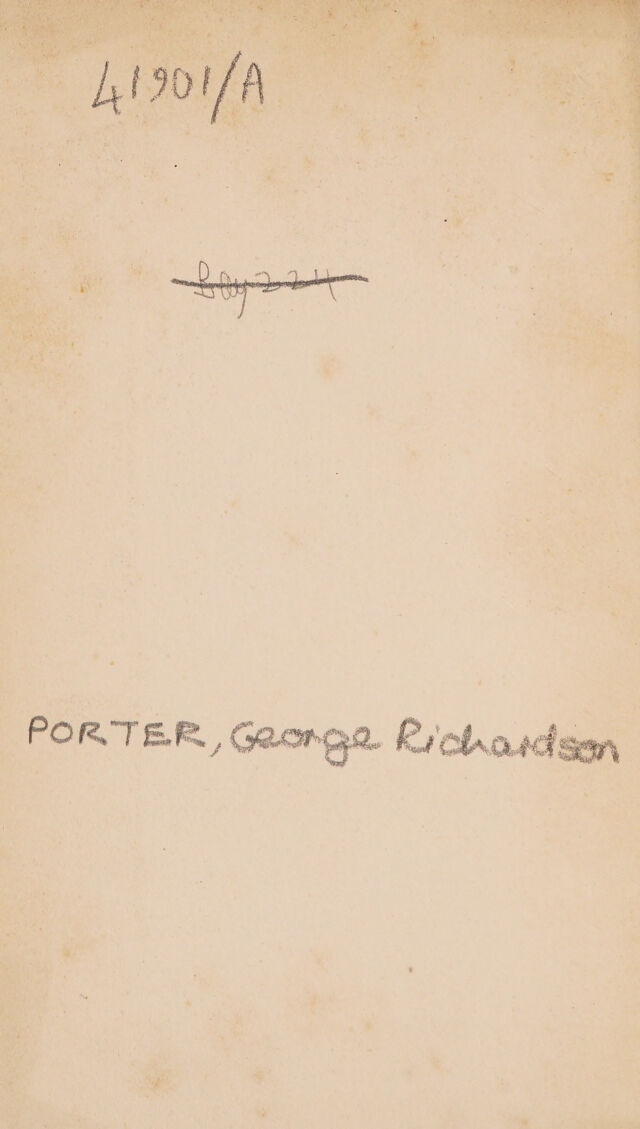 41901/A
Bay 224
PORTER, George Richardson